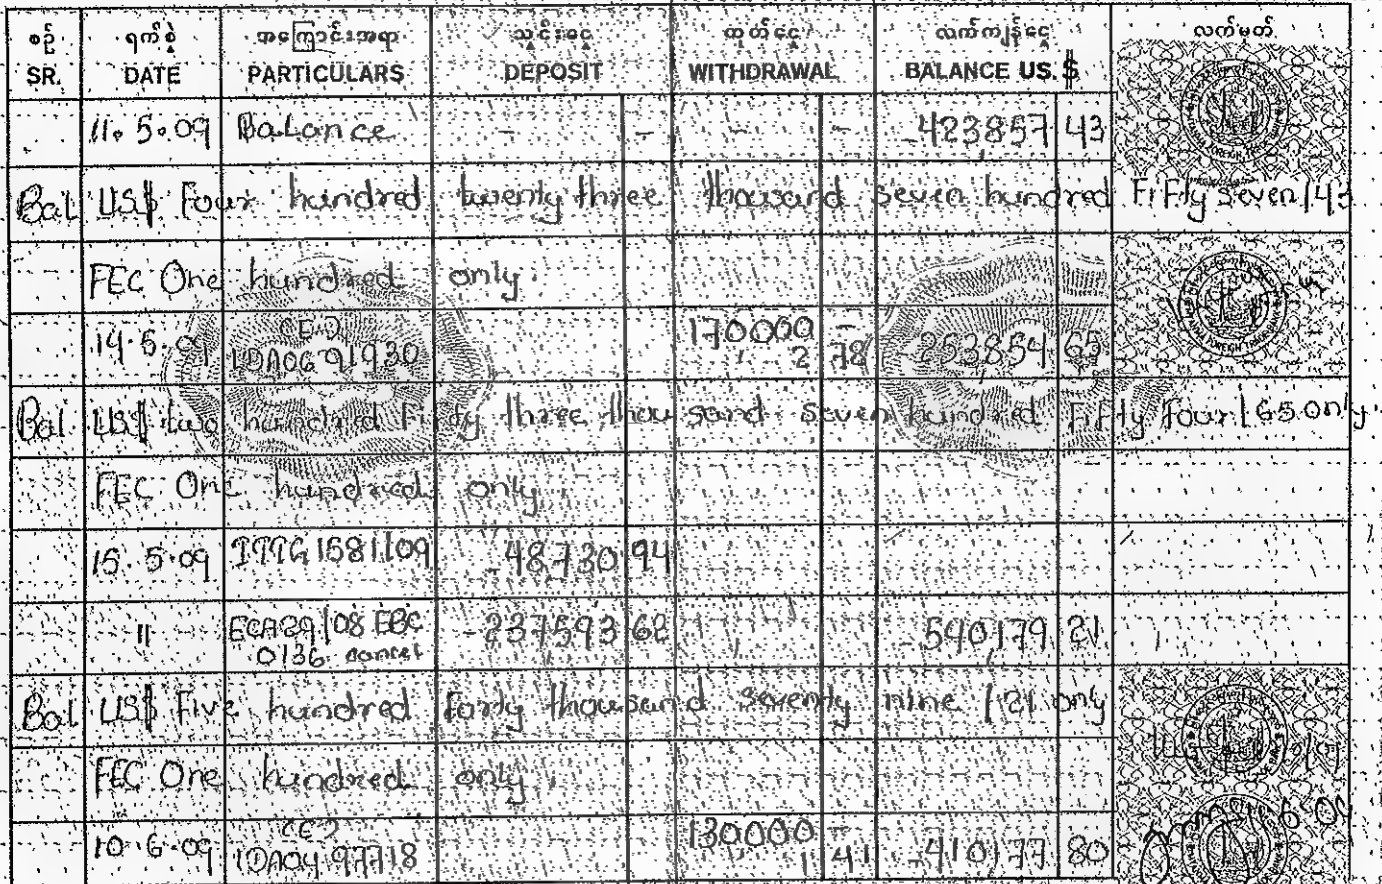 စဉ် ရက်စွဲ အကြောင်းအရာ သွင်းငွေ ထုတ်ငွေ လက်ကျန်ငွေ လက်မှတ်
SR. DATE PARTICULARS DEPOSIT WITHDRAWAL BALANCE US.$
11.5.09 Balance - - - - -423857 43
Bal US$ Four hundred twenty three thousand seven hundred Fifty Seven/43
FEC One hundred only.
14.5.09 IDA0691930 170000 - 2 78 -253854 65
Bal US$ two hundred Fifty three thousand seven hundred Fifty Four/65 only.
FEC One hundred only
15.5.09 TTTG1581/09 -48730 94
" ECA29/08 EBC 0136 cancel -237593 62 -540179 21
Bal US$ Five hundred forty thousand seventy nine /21 only
FEC One hundred only
10.6.09 IDA0497718 130000 - 1 41 -410177 80